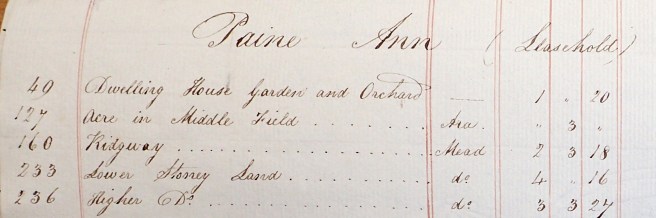 Paine Ann (Leasehold)
49 Dwelling House Garden and Orchard — 1 " 20
127 Acre in Middle Field . . . . . . . Ara. " 3 "
160 Ridgway . . . . . . . . . . . . . . . . . Mead 2 3 18
233 Lower Stoney Land . . . . . . . . . . do 4 " 16
236 Higher Do. . . . . . . . . . . . . . . . . do 3 3 27